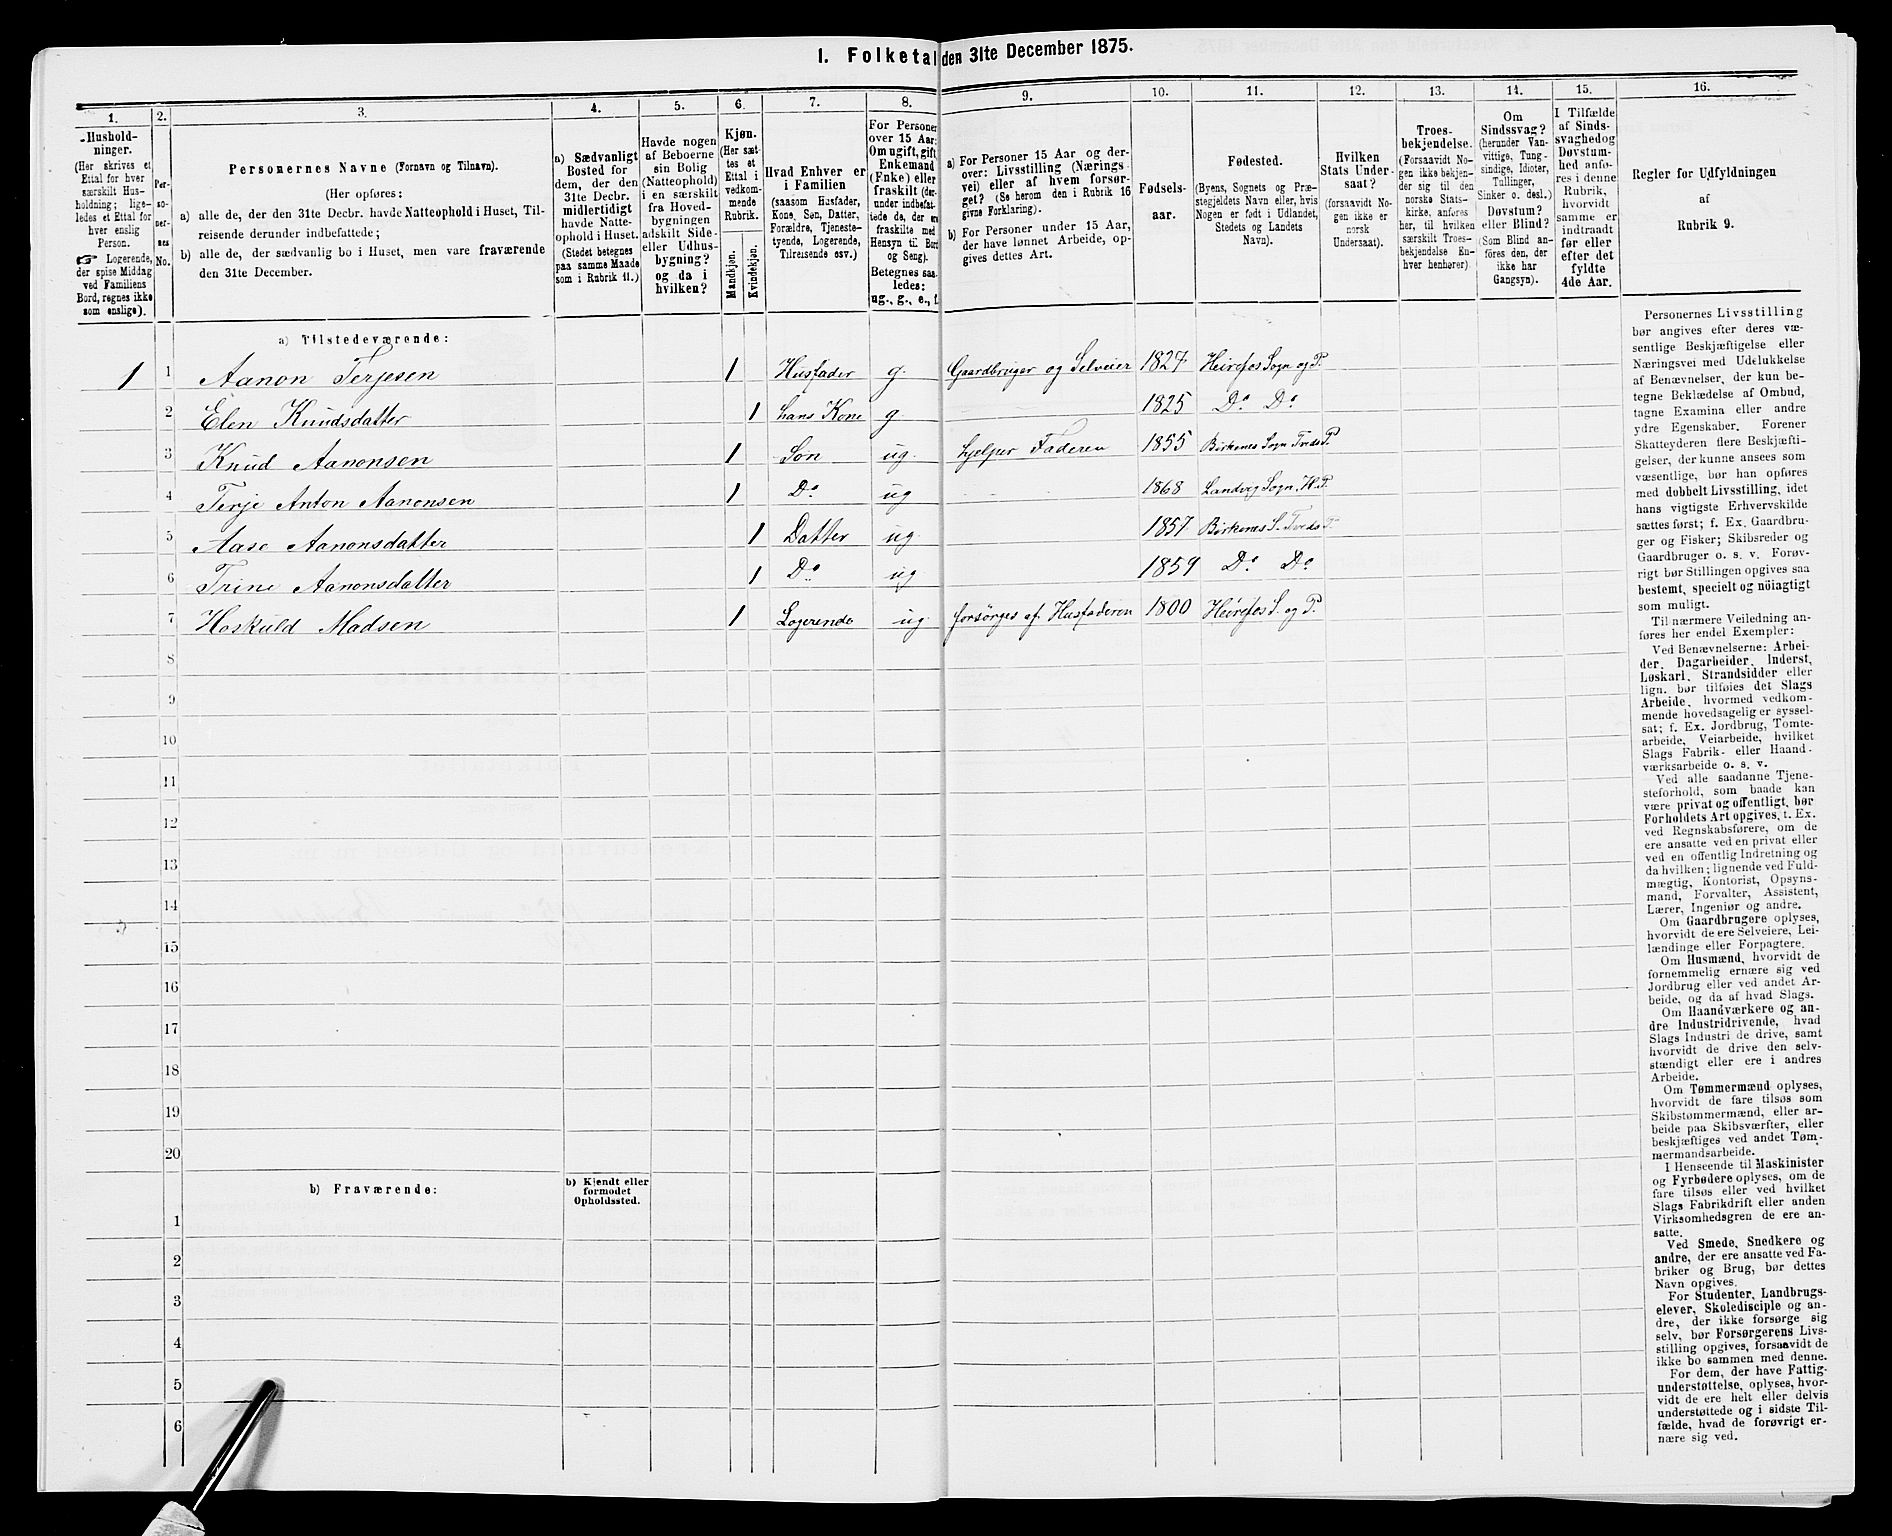 I. Folketal den 31te December 1875.
1. 2. 3. 4. 5. 6. 7. 8. 9. 10. 11. 12. 13. 14. 15. 16.
Husholdninger.
(Her skrives et
Ettal for hver
særskilt Hus-
holdning; lige-
ledes et Ettal for
hver enslig
Person.
☞ Logerende,
der spise Middag
ved Familiens
Bord, regnes ikke
som enslige).
Per-
so-
ner-
nes
No.
Personernes Navne (Fornavn og Tilnavn).
(Her opføres:
a) alle de, der den 31te Decbr. havde Natteophold i Huset, Til-
reisende derunder indbefattede;
b) alle de, der sædvanlig bo i Huset, men vare fraværende
den 31te December.
a) Sædvanligt
Bosted for
dem, der den
31te Decbr.
midlertidigt
havde Natte-
ophold i Huset.
(Stedet betegnes
paa samme Maade
som i Rubrik 11.)
Havde nogen
af Beboerne
sin Bolig
(Natteophold)
i en særskilt
fra Hoved-
bygningen
adskilt Side-
eller Udhus-
bygning?
og da i
hvilken?
Kjøn.
(Her sæt-
tes et
Ettal i
vedkom-
mende
Rubrik.
Mandkjøn.
Kvindekjøn.
Hvad Enhver er
i Familien
(saasom Husfader,
Kone, Søn, Datter,
Forældre, Tjeneste-
tyende, Logerende,
Tilreisende osv.)
For Personer
over 15 Aar:
Om ugift, gift,
Enkemand
(Enke) eller
fraskilt (der-
under indbefat-
tede de, der ere
fraskilte med
Hensyn til Bord
og Seng).
Betegnes saa-
ledes:
ug., g., e., f.
a) For Personer 15 Aar og der-
over: Livsstilling (Nærings-
vei) eller af hvem forsør-
get? (Se herom den i Rubrik 16
givne Forklaring).
b) For Personer under 15 Aar,
der have lønnet Arbeide, op-
gives dettes Art.
Fødsels-
aar.
Fødested.
(Byens, Sognets og Præ-
stegjeldets Navn eller, hvis
Nogen er født i Udlandet,
Stedets og Landets
Navn).
Hvilken
Stats Under-
saat?
(forsaavidt No-
gen ikke er
norsk
Undersaat).
Troes-
bekjendelse.
(Forsaavidt No-
gen ikke bekjen-
der sig til den
norske Stats-
kirke, anføres
her, til hvilken
særskilt Troes-
bekjendelse En-
hver henhører).
Om
Sindssvag?
(herunder Van-
vittige, Tung-
sindige, Idioter,
Tullinger,
Sinker o. desl.).
Døvstum?
eller Blind?
(Som Blind an-
føres den, der
ikke har
Gangsyn).
I Tilfælde
af Sinds-
svaghed og
Døvstum-
hed anfø-
res i denne
Rubrik,
hvorvidt
samme er
indtraadt
før eller
efter det
fyldte
4de Aar.
Regler for Udfyldningen
af
Rubrik 9.
a) Tilstedeværende:
1 1 Aanon Terjesen 1 Husfader g. Gaardbruger og Selveier 1827 Heirefos Sogn og P.
2 Elen Knudsdatter 1 hans Kone g 1825 Do Do
3 Knud Aanonsen 1 Søn ug. hjelper Faderen 1855 Birkenes Sogn Tveds P.
4 Terje Anton Aanonsen 1 Do ug 1868 Landvig Sogn, H. P.
5 Aase Aanonsdatter 1 Datter ug. 1857 Birkenes S. Tveds P
6 Trine Aanonsdatter 1 Do ug 1859 Do Do
7 Hoskuld Madsen 1 Logerende ug. forsørges af Husfaderen 1800 Heirefos S. og P.
8
9
10
11
12
13
14
15
16
17
18
19
20
b) Fraværende:
b) Kjendt eller
formodet
Opholdssted.
1
2
3
4
5
6
Personernes Livsstilling
bør angives efter deres væ-
sentlige Beskjæftigelse eller
Næringsvei med Udelukkelse
af Benævnelser, der kun be-
tegne Beklædelse af Ombud,
tagne Examina eller andre
ydre Egenskaber. Forener
Skatteyderen flere Beskjæfti-
gelser, der kunne ansees som
væsentlige, bør han opføres
med dobbelt Livsstilling, idet
hans vigtigste Erhvervskilde
sættes først; f. Ex. Gaardbru-
ger og Fisker; Skibsreder og
Gaardbruger o. s. v. Forøv-
rigt bør Stillingen opgives saa
bestemt, specielt og nöiagtigt
som muligt.
Til nærmere Veiledning an-
føres her endel Exempler:
Ved Benævnelserne: Arbei-
der, Dagarbeider, Inderst,
Løskarl, Strandsidder eller
lign. bør tilføies det Slags
Arbeide, hvormed vedkom-
mende hovedsagelig er syssel-
sat; f. Ex. Jordbrug, Tomte-
arbeide, Veiarbeide, hvilket
Slags Fabrik- eller Haand-
værksarbeide o. s. v.
Ved alle saadanne Tjene-
steforhold, som baade kan
være privat og offentligt, bør
Forholdets Art opgives, t. Ex.
ved Regnskabsførere, om de
ere ansatte ved en privat eller
ved en offentlig Indretning og
da hvilken; lignende ved Fuld-
mægtig, Kontorist, Opsyns-
mand, Forvalter, Assistent,
Lærer, Ingeniør og andre.
Om Gaardbrugere oplyses,
hvorvidt de ere Selveiere, Lei-
lændinge eller Forpagtere.
Om Husmænd, hvorvidt de
fornemmelig ernære sig ved
Jordbrug eller ved andet Ar-
beide, og da af hvad Slags.
Om Haandværkere og an-
dre Industridrivende, hvad
Slags Industri de drive, samt
hvorvidt de drive den selv-
stændigt eller ere i andres
Arbeide.
Om Tømmermænd oplyses,
hvorvidt de fare tilsøs som
Skibstømmermænd, eller ar-
beide paa Skibsværfter, eller
beskjæftiges ved andet Tøm-
mermandsarbeide.
I Henseende til Maskinister
og Fyrbødere oplyses, om de
fare tilsøs eller ved hvilket
Slags Fabrikdrift eller anden
Virksomhedsgren de ere an-
satte.
Ved Smede, Snedkere og
andre, der ere ansatte ved Fa-
briker og Brug, bør dettes
Navn opgives.
For Studenter, Landbrugs-
elever, Skoledisciple og an-
dre, der ikke forsørge sig
selv, bør Forsørgerens Livs-
stilling opgives, forsaavidt de
ikke bo sammen med denne.
For dem, der have Fattig-
understøttelse, oplyses, hvor-
vidt de ere helt eller delvis
understøttede og i sidste Til-
fælde, hvad de forøvrigt er-
nære sig ved.